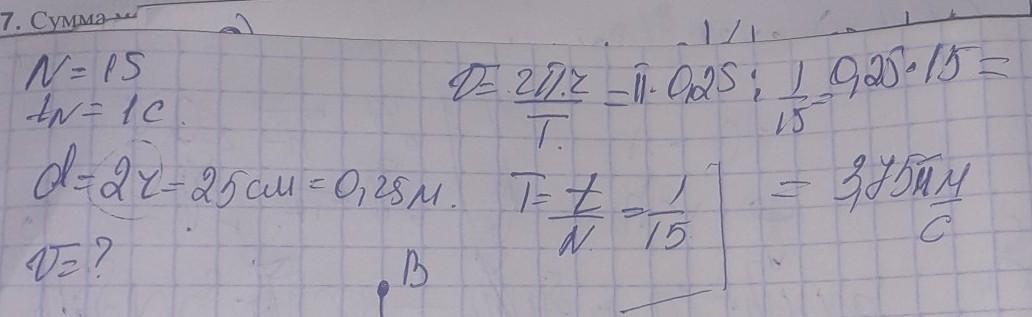 7. Сумма
N = 15
tN = 1 с.
d = 2r = 25 см = 0,25 м.
v = ?
v = 2π.r / T. = π · 0,25 : 1/15 = 0,25 · 15 =
T = t/N. = 1/15
= 3,75π м/с
B